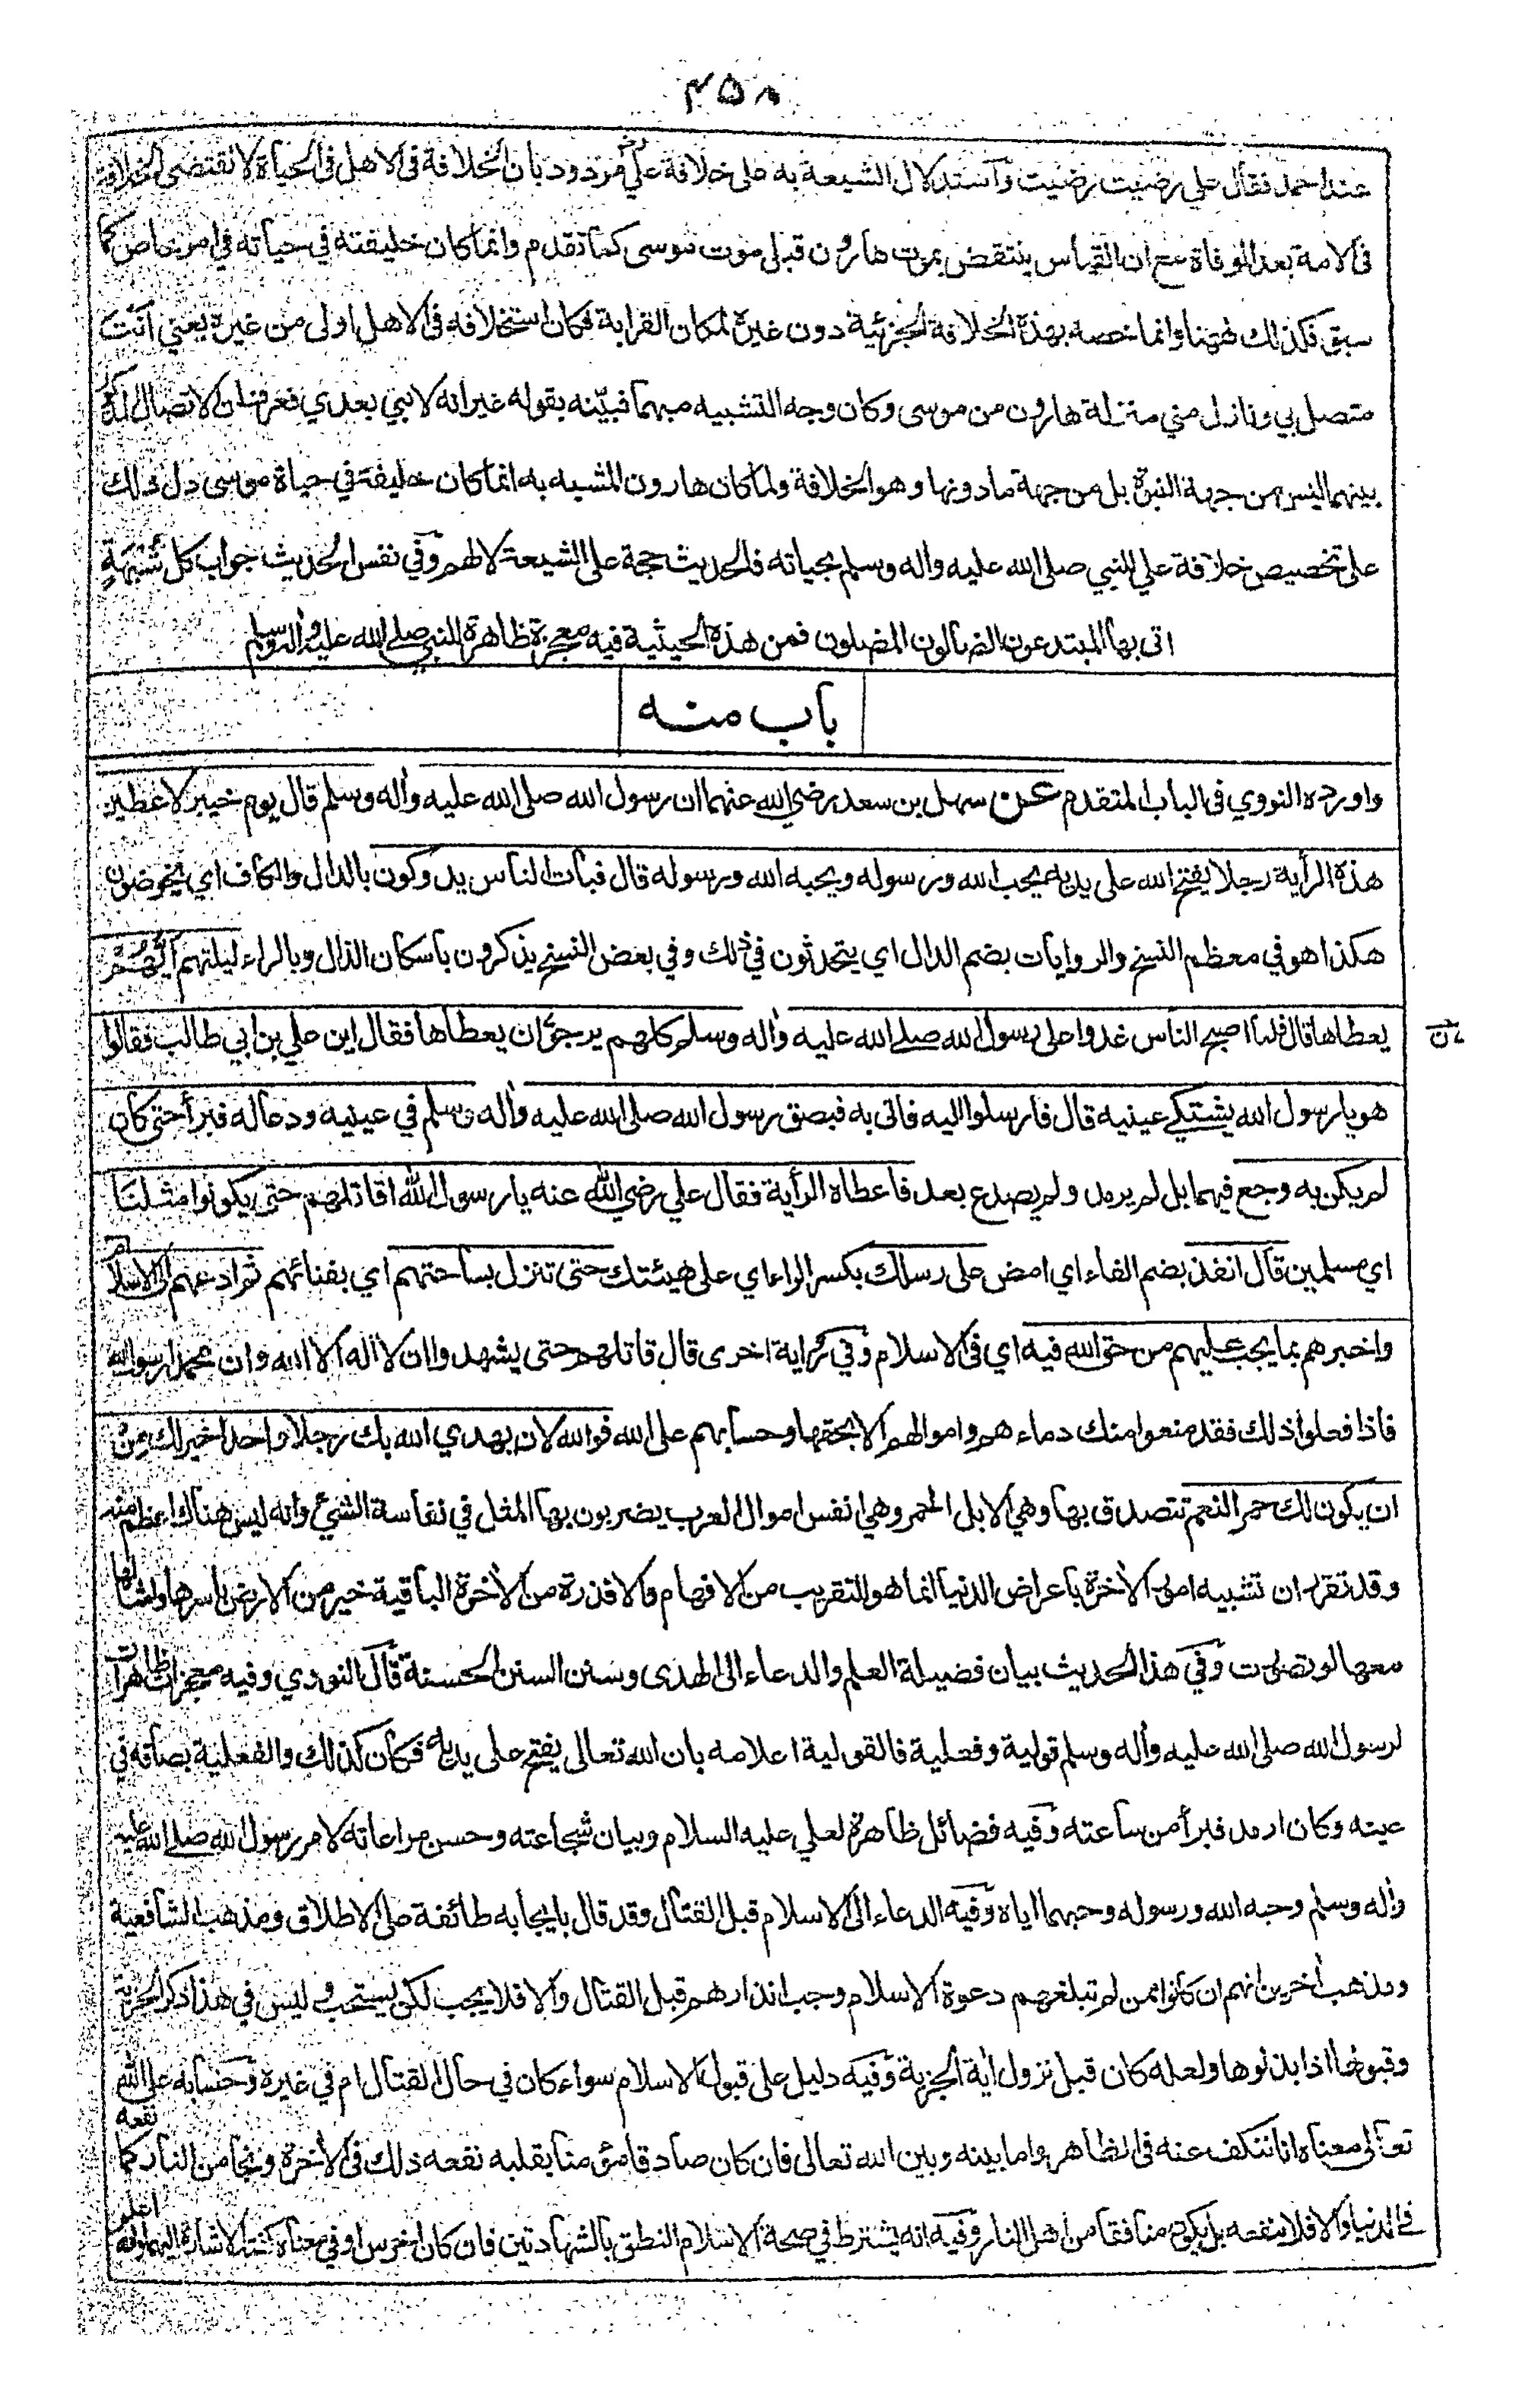 ٣٥٨
عند احمد فقال علي رضيت رضيت وآستدلال الشيعة به على خلافة علي رض مردود بان الخلافة فى الاهل فى الحياة لا تقتضى الخلافة
فى الامة بعد الوفاة مع ان القياس ينتقض بموت هارون قبل موت موسى كما تقدم وانما كان خليفته في حياته في امر خاص كما
سبق فكذلك ههنا وانما خصه بهذه الخلافة الجزئية دون غيره لمكان القرابة فكان استخلافه فى الاهل اولى من غيره يعني انت
متصل بي ونازل مني منزلة هارون من موسى وكان وجه التشبيه مبهما فبيّنه بقوله غير انه لا نبي بعدي فعرف ان الاتصال المذكور
بينهما ليس من جهة النبوة بل من جهة ما دونها وهو الخلافة ولما كان هارون المشبه به انما كان خليفة في حياة موسى دل ذلك
على تخصيص خلافة علي للنبي صلى الله عليه واله وسلم بحياته فالحديث حجة على الشيعة لا لهم وفي نفس الحديث جواب كل شبهة
اتى بها المبتدعون الضالون المضلون فمن هذه الحيثية فيه معجزة ظاهرة للنبي صلى الله عليه واله وسلم
باب منه
واورده النووي فى الباب المتقدم عن سهل بن سعد رضي الله عنهما ان رسول الله صلى الله عليه واله وسلم قال يوم خيبر لاعطين
هذه الرأية رجلا يفتح الله على يديه يحب الله ورسوله ويحبه الله ورسوله قال فبات الناس يدوكون بالدال والكاف اي يخوضون
هكذا هو في معظم النسخ والروايات بضم الدال اي يتحدثون في ذلك وفي بعض النسخ يذكرون باسكان الذال وبالراء ليلتهم ايهم
يعطاها قال فلما اصبح الناس غدوا على رسول الله صلى الله عليه واله وسلم كلهم يرجون ان يعطاها فقال اين علي بن ابي طالب فقالوا
هو يا رسول الله يشتكي عينيه قال فارسلوا اليه فاتى به فبصق رسول الله صلى الله عليه واله وسلم في عينيه ودعا له فبرأ حتى كان
لم يكن به وجع فيهما بل لم يرمد ولم يصدع بعد فاعطاه الرأية فقال علي رضي الله عنه يا رسول الله اقاتلهم حتى يكونوا مثلنا
اي مسلمين قال انفذ بضم الفاء اي امض على رسلك بكسر الراء اي على هيئتك حتى تنزل بساحتهم اي بفنائهم ثم ادعهم الى الاسلام
واخبرهم بما يجب عليهم من حق الله فيه اي فى الاسلام وفي رواية اخرى قال قاتلهم حتى يشهدوا ان لا اله الا الله وان محمدا رسول الله
فاذا فعلوا ذلك فقد منعوا منك دماءهم واموالهم الا بحقها وحسابهم على الله فوالله لان يهدي الله بك رجلا واحدا خير لك من
ان يكون لك حمر النعم تتصدق بها وهي الابل الحمر وهي انفس اموال العرب يضربون بها المثل في نفاسة الشيء وانه ليس هناك اعظم منه
وقد تقرر ان تشبيه امور الأخرة باعراض الدنيا انما هو للتقريب من الافهام والا فذرة من الأخرة الباقية خير من الارض باسرها وامثالها
معها لو تصورت وفي هذا الحديث بيان فضيلة العلم والدعاء الى الهدى وسنن السنن الحسنة قال النووي وفيه معجزات ظاهرات
لرسول الله صلى الله عليه وأله وسلم قولية وفعلية فالقولية اعلامه بان الله تعالى يفتح على يديه فكان كذلك والفعلية بصاقه في
عينه وكان ارمد فبرأ من ساعته وفيه فضائل ظاهرة لعلي عليه السلام وبيان شجاعته وحسن مراعاته لامر رسول الله صلى الله عليه
واله وسلم وحبه الله ورسوله وحبهما اياه وفيه الدعاء الى الاسلام قبل القتال وقد قال بايجابه طائفة على الاطلاق ومذهب الشافعية
ومذهب أخرين انهم ان كانوا ممن لم تبلغهم دعوة الاسلام وجب انذارهم قبل القتال والا فلا يجب لكن يستحب وليس في هذا ذكر الجزية
وقبولها اذا بذلوها ولعله كان قبل نزول أية الجزية وفيه دليل على قبول الاسلام سواء كان في حال القتال ام في غيره وحسابه على الله
تعالى معناه انا نكف عنه فى الظاهر واما بينه وبين الله تعالى فان كان صادقا مؤمنا بقلبه نفعه ذلك فى الأخرة ونجا من النار كما نفعه
في الدنيا والا فلا ينفعه بل يكون منافقا من اهل النار وفيه انه يشترط في صحة الاسلام النطق بالشهادتين فان كان اخرس او في معناه كفته الاشارة اليهما والله اعلم